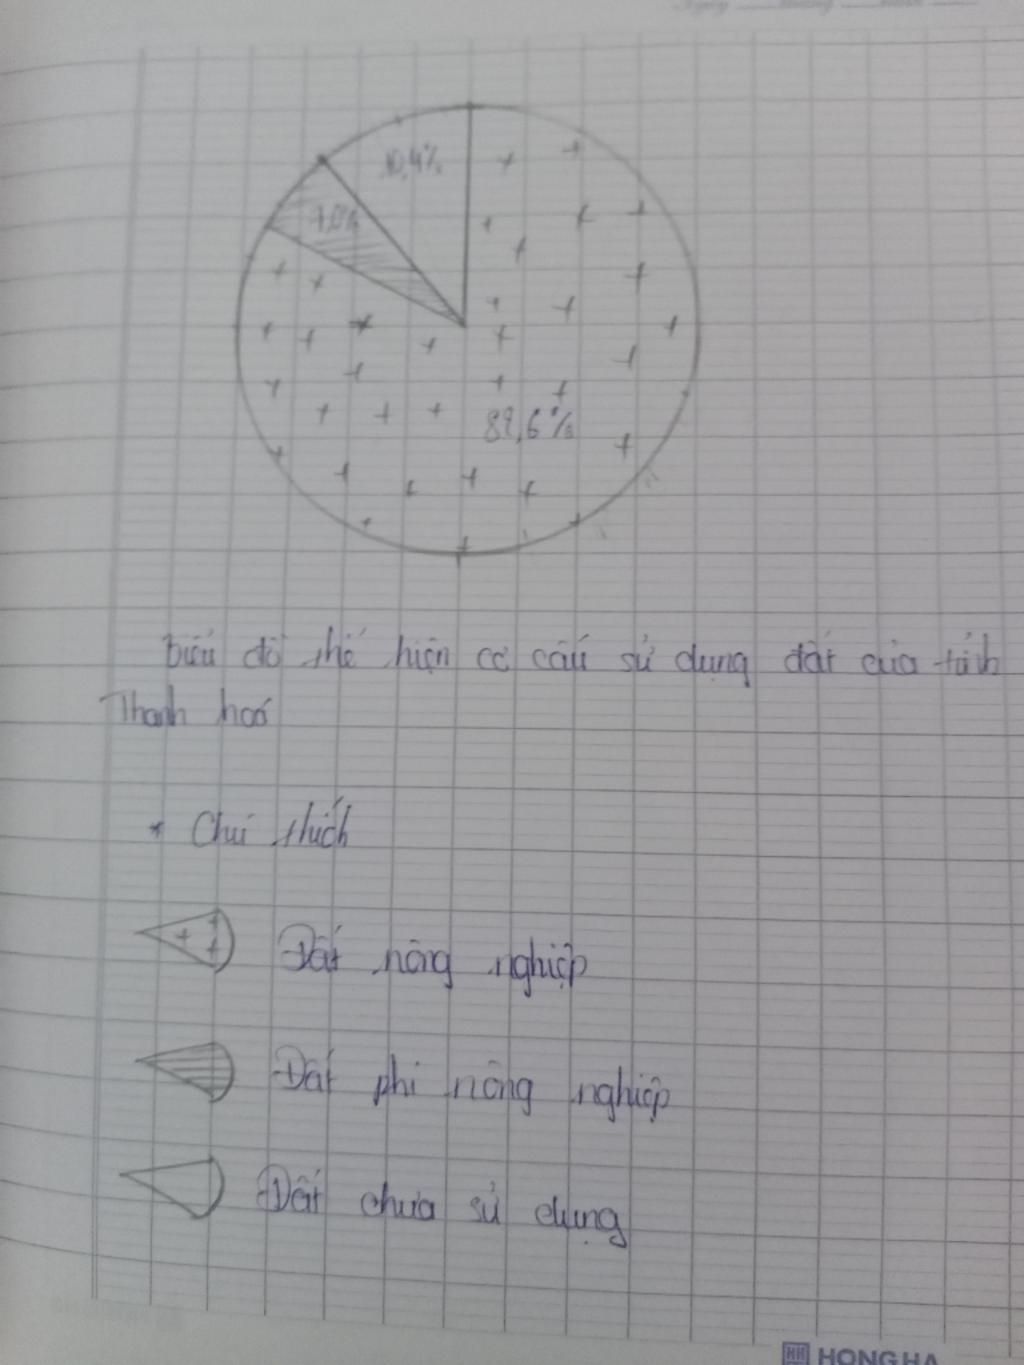 10,4%
7,0%
82,6%
Biểu đồ thể hiện cơ cấu sử dụng đất của tỉnh
Thanh hoá
* Chú thích
Đất nông nghiệp
Đất phi nông nghiệp
Đất chưa sử dụng
HH HONG HA